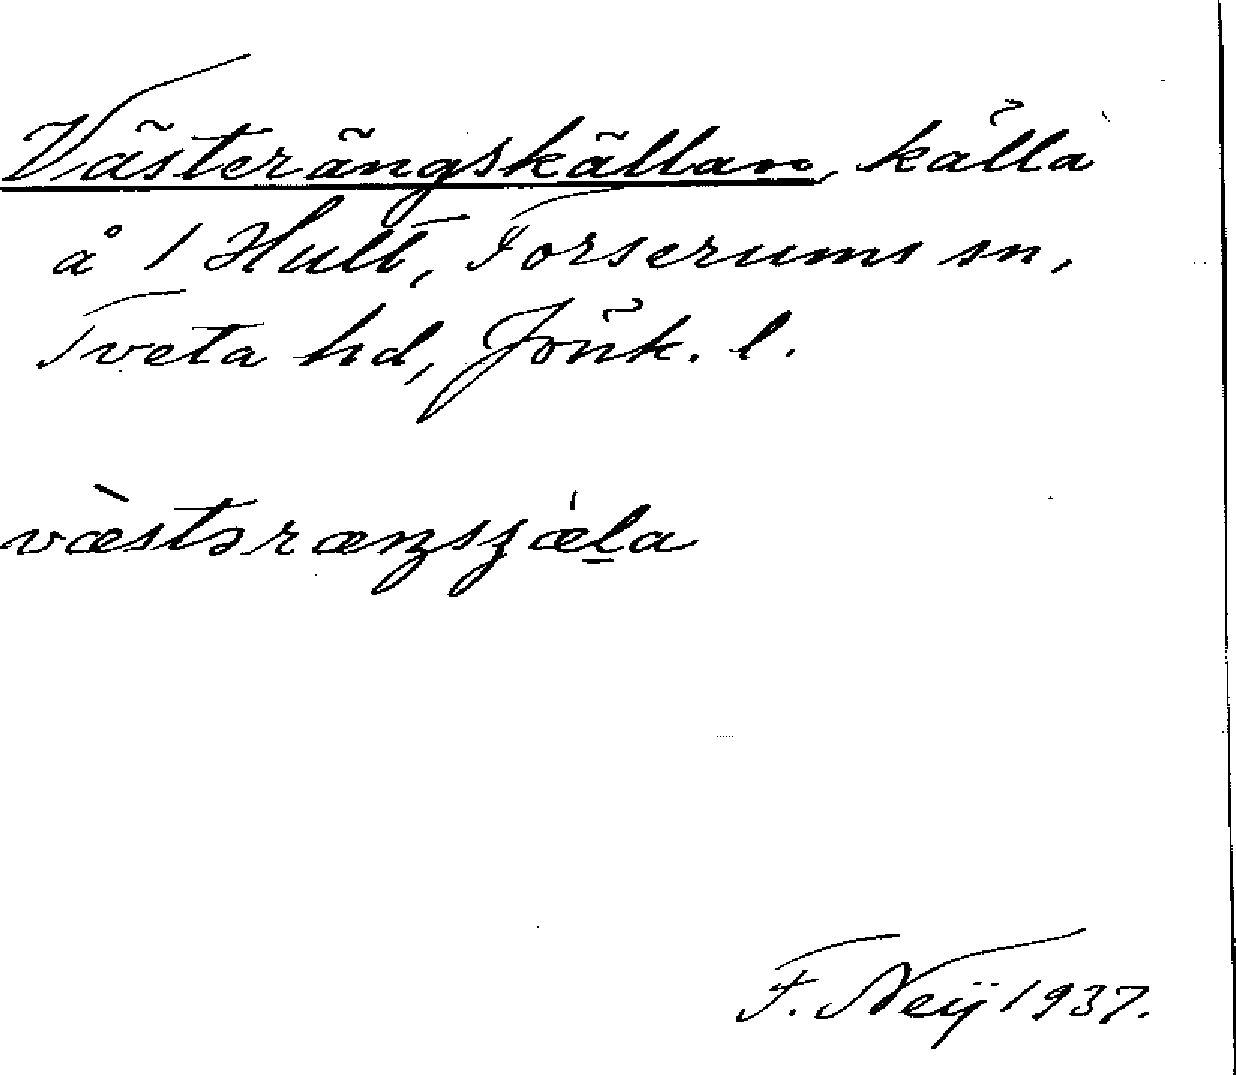 Västerängskällan, källa
å 1 Hult, Forserums sn,
Tveta hd, Jönk. l.
væ̀stəræŋsɟǽḷa
F. Neÿ 1937.